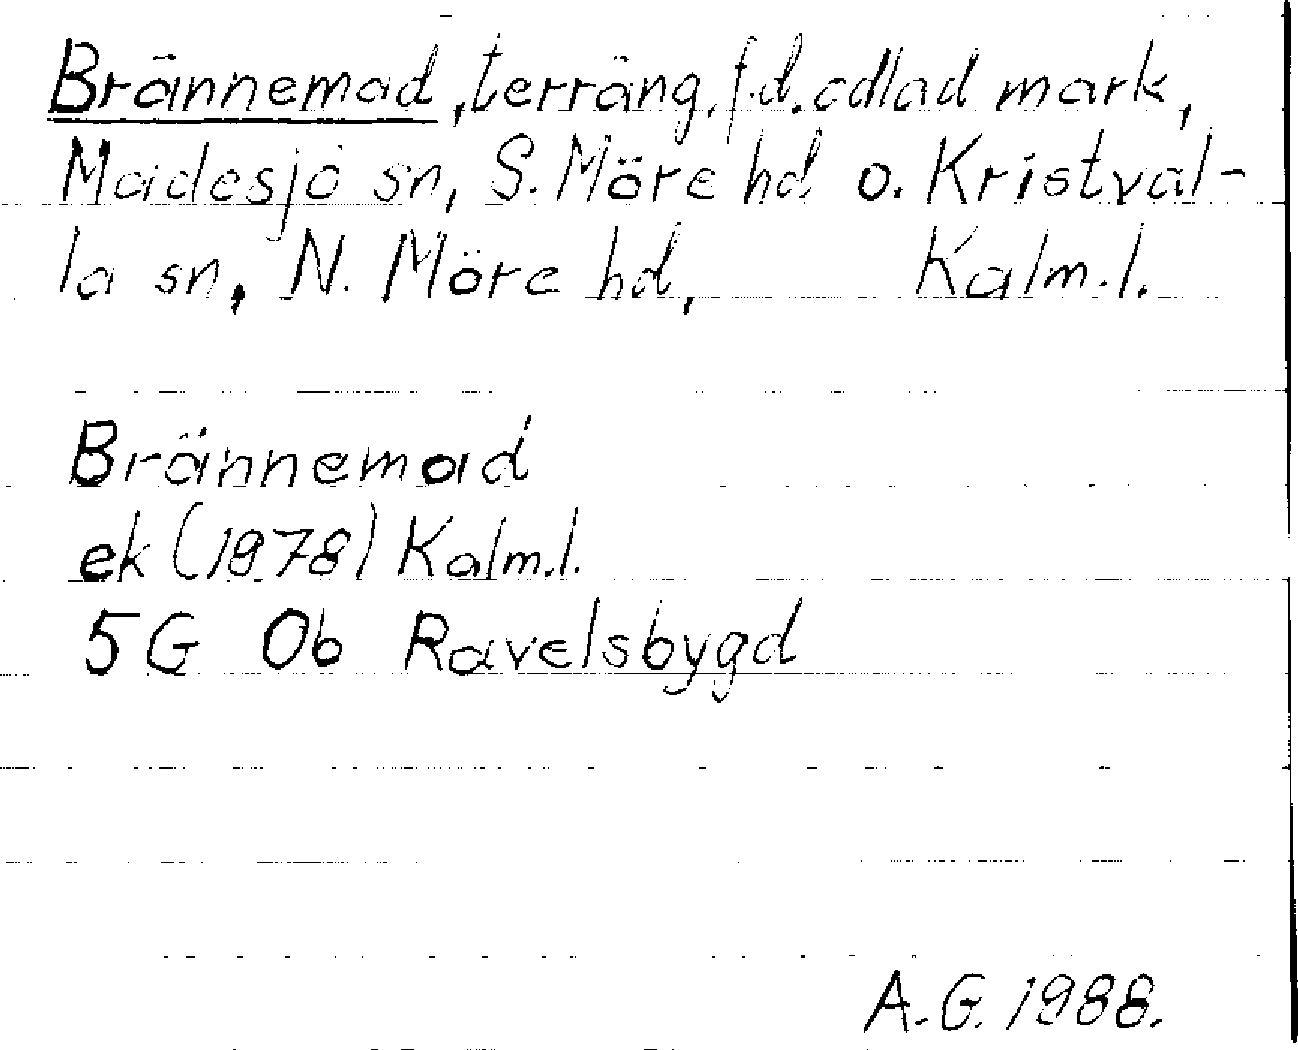 Brännemad, terräng, f.d. odlad mark,
Madesjö sn, S. Möre hd o. Kristval-
la sn, N. Möre hd, Kalm.l.
Brännemad
ek (1978) Kalm.l.
5G 0b Ravelsbygd
A.G. 1988.